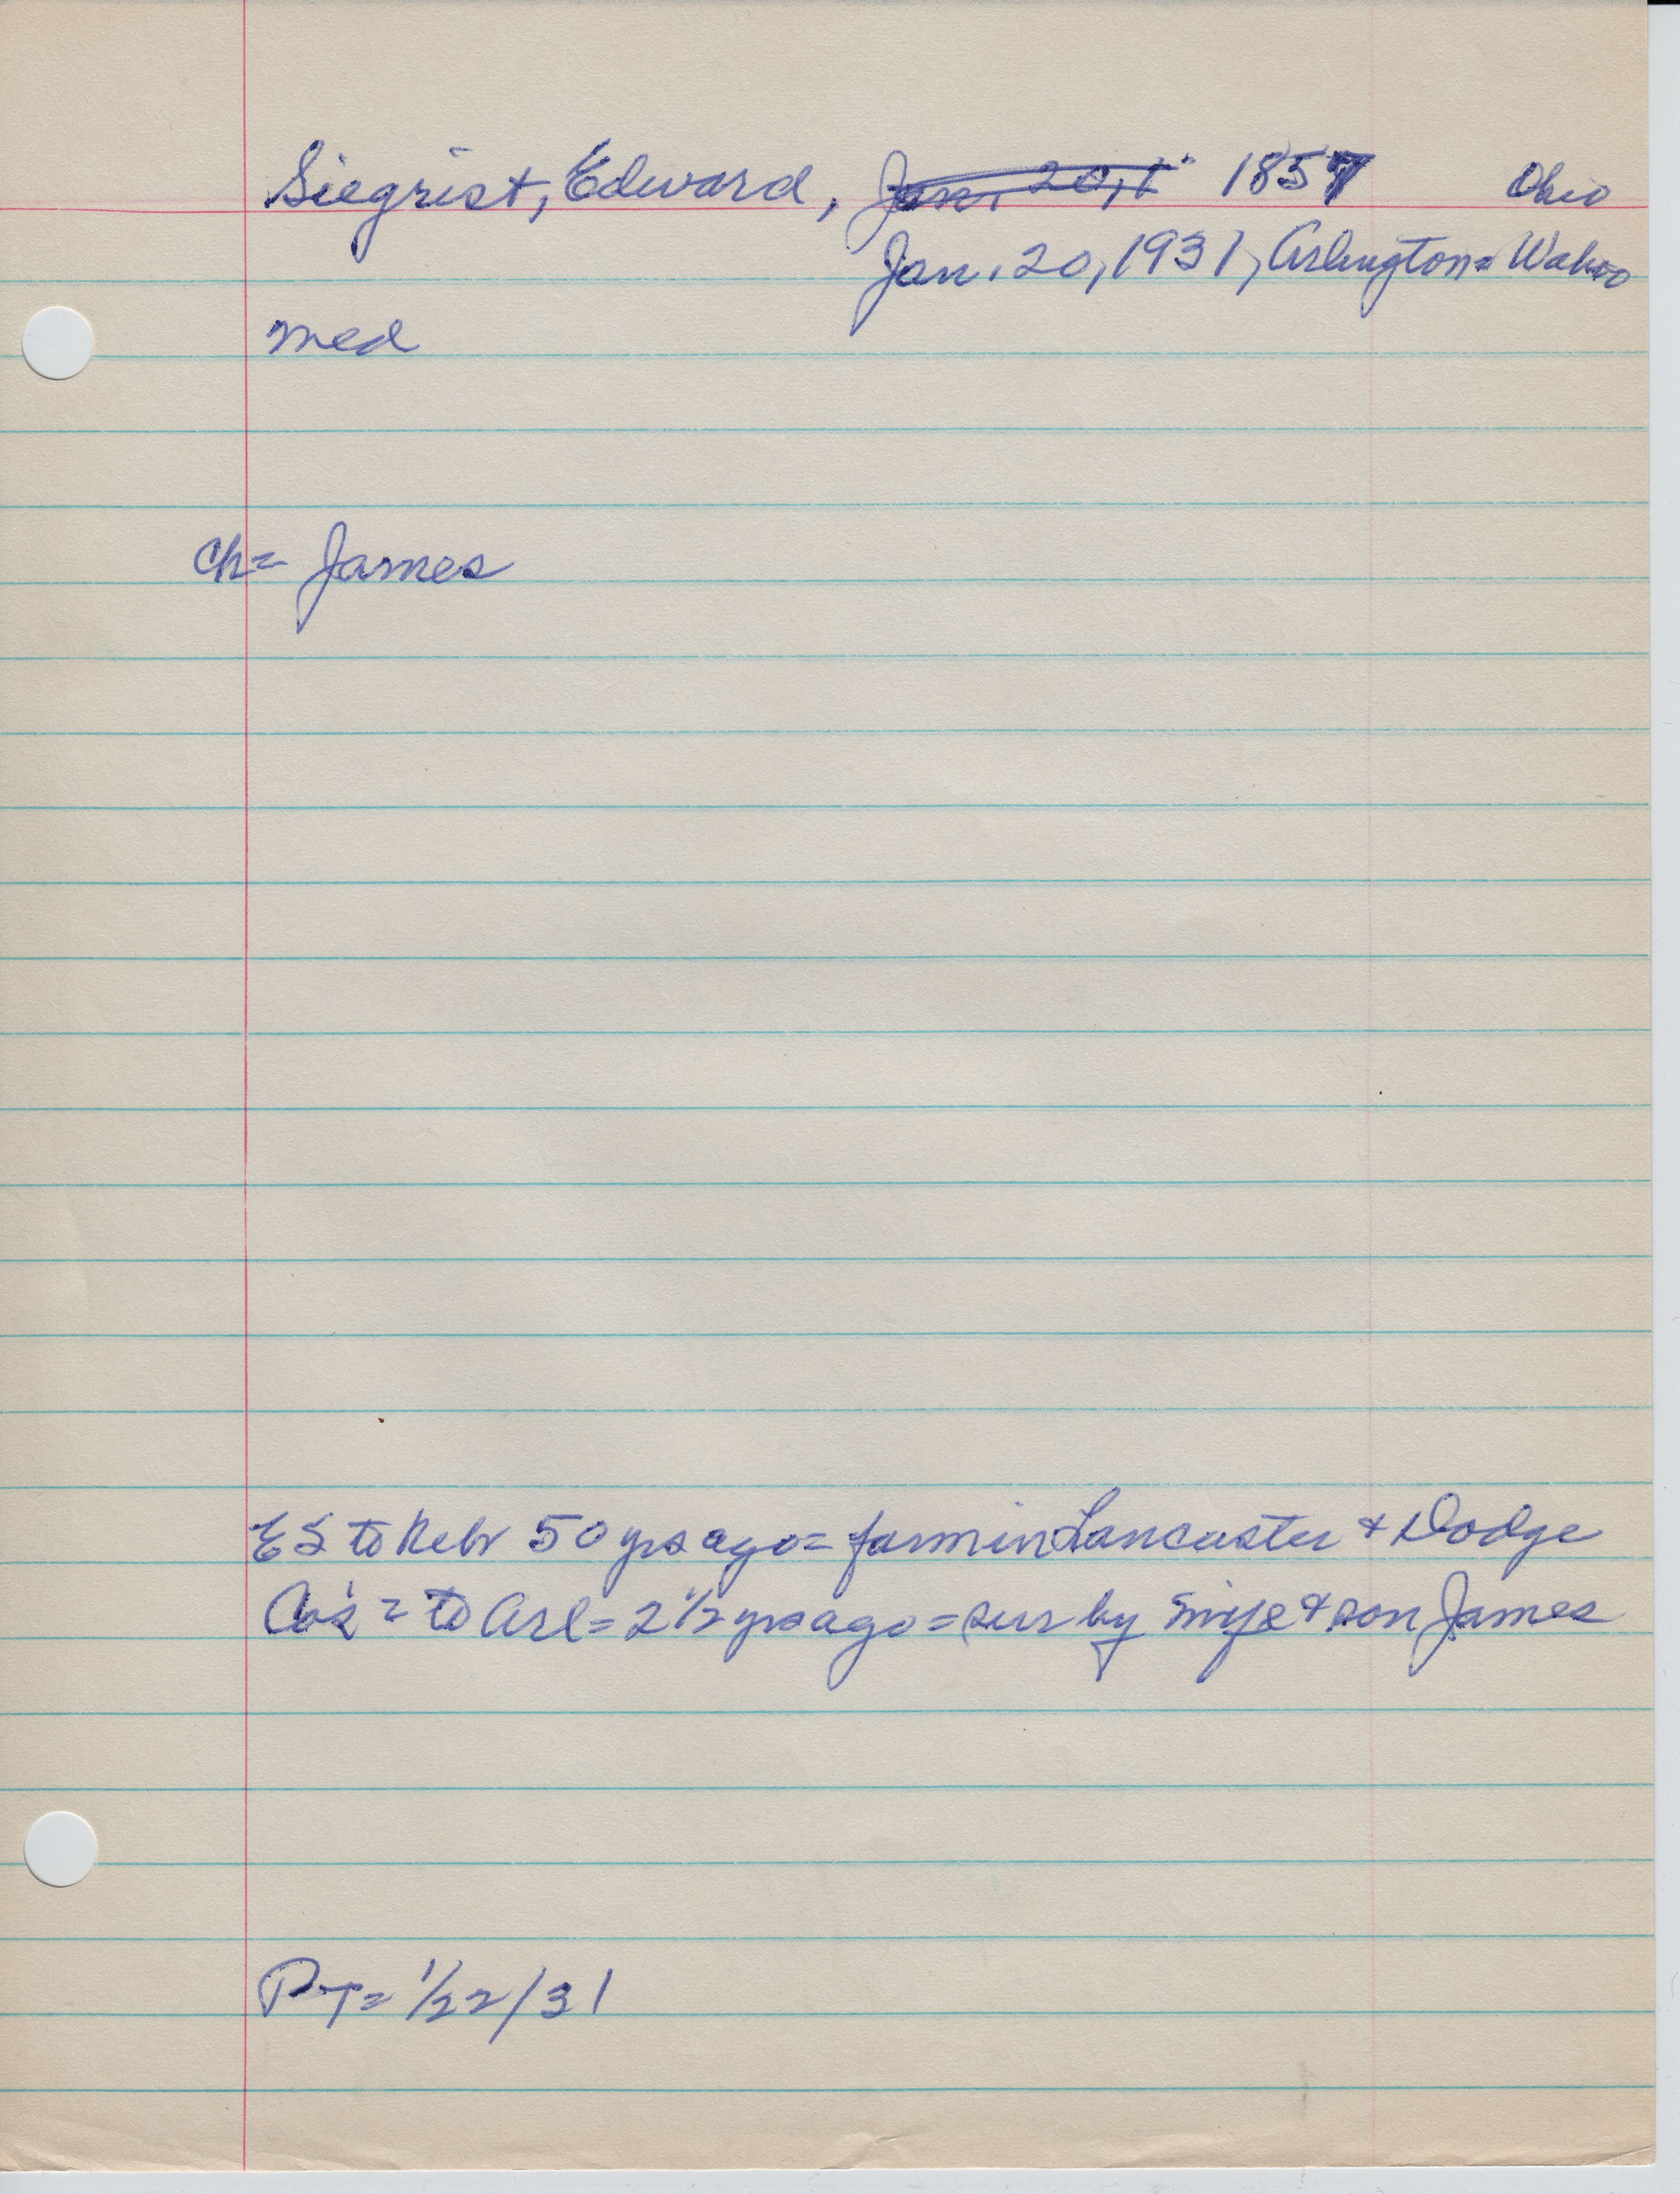 Siegrist, Edward, Jan. 20, 1 1857 Ohio
Jan. 20, 1931, Arlington = Wahoo
med
ch = James
ES to Nebr 50 yrs ago = farm in Lancaster & Dodge
Co's = to Arl = 2 1/2 yrs ago = sur by wife & son James
PT = 1/22/31